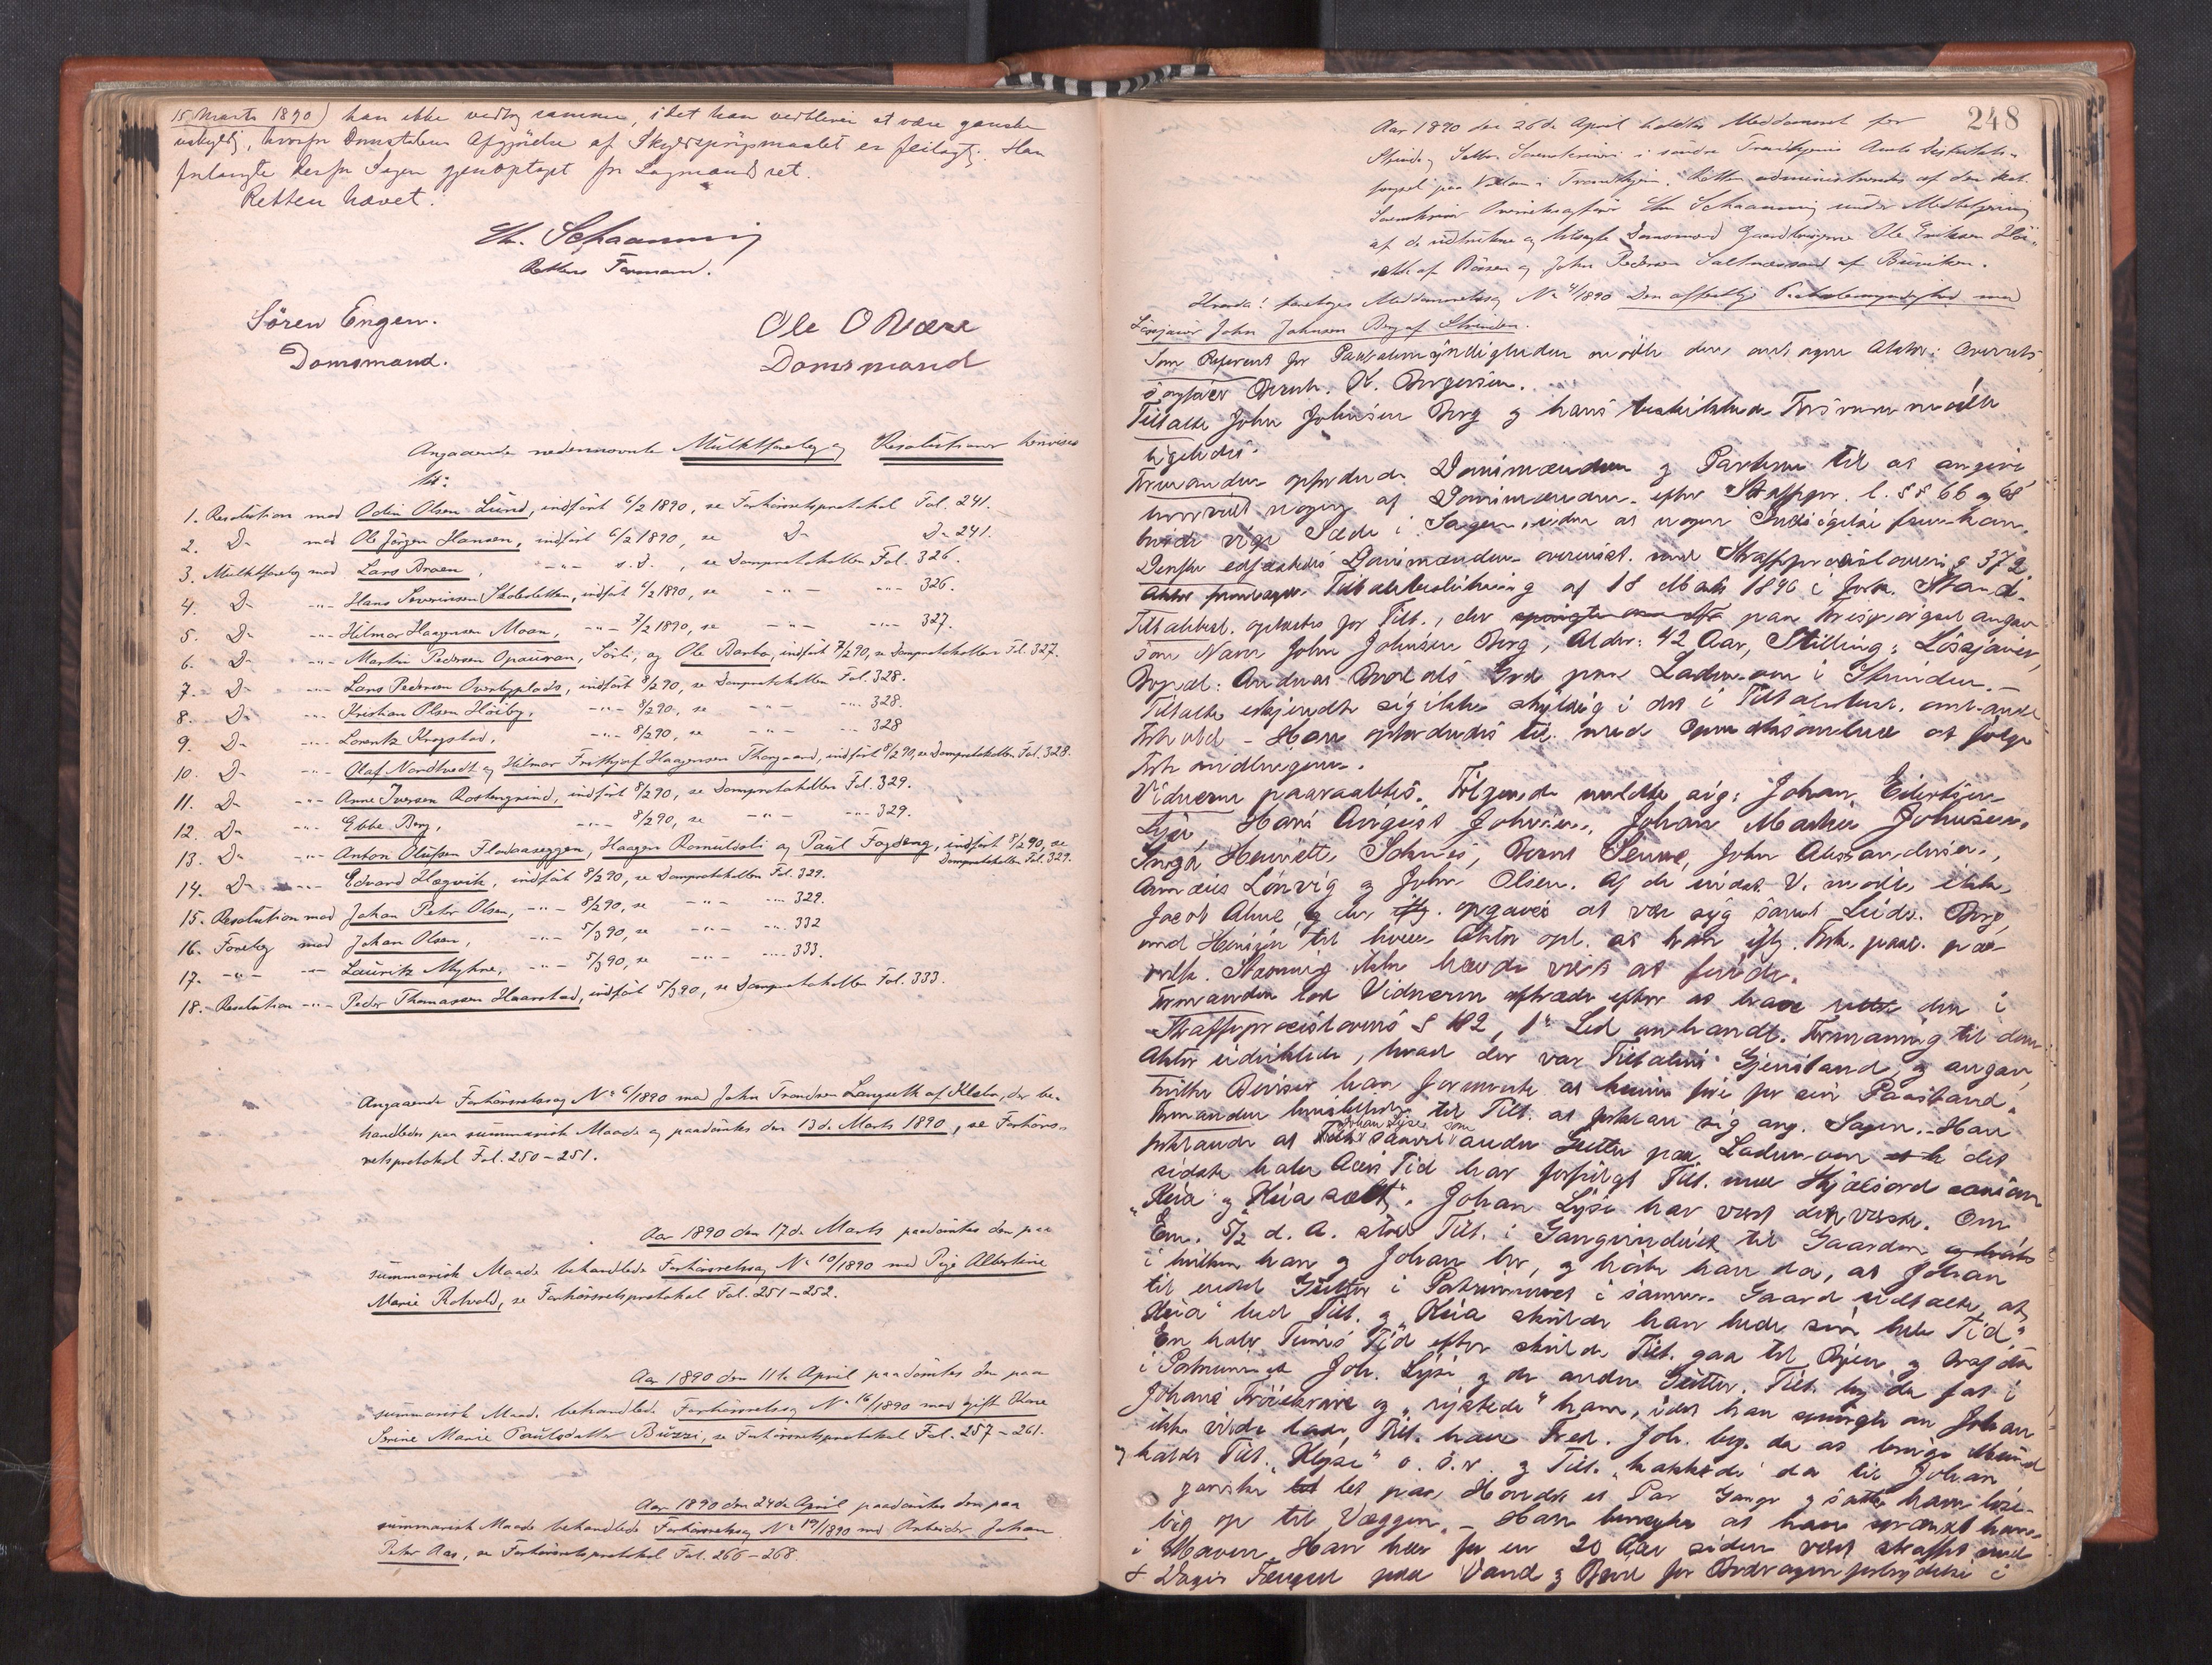 15 Marts 1890) kan ikke vedtag samme, idet han vedbliver at være ganske
uskyldig, hvorfor Domstolens Afgjørelse af Skyldspørgsmaalet er feilagtig. Han
forlangte derfor Sagen gjenoptaget for Lagmandsret.
Retten hævet.
Chr. Schaanning
Rettens Formand.
Sören Engen.
Domsmand.
Ole O Næss
Domsmand
Angaaende nedennævnte Mulktforelæg og Resolutioner henvises
til:
1. Resolution mod Odin Olsen Lund, indført 6/2 1890, se Forhørsretsprotokol Fol. 241.
2. Do mod Ole Jörgen Hansen, indført 6/2 1890, se Do Do 241.
3. Mulktforelæg mod Lars Broen, -"- s. d., se Domsprotokollen Fol. 326.
4. Do -"- Hans Severinsen Skoleletten, indført 6/2 1890, se -"- -"- 326.
5. Do -"- Hilmar Haagensen Moan, -"- 7/2 1890, se -"- -"- 327.
6. Do -"- Martin Pedersen Opauran, Sörli, og Ole Barbo, indført 7/2 90, se Domsprotokollen Fol. 327.
7. Do -"- Lars Pedersen Overbyplads, indført 8/2 90, se Domsprotokollen Fol. 328.
8. Do -"- Kristian Olsen Höiby, -"- 8/2 90, se -"- -"- 328.
9. Do -"- Lorentz Krogstad, -"- 8/2 90, se -"- -"- 328
10. Do -"- Olaf Nordtvedt og Hilmar Frithjof Haagensen Thorgaard, indført 8/2 90, se Domsprotokollen Fol. 328.
11. Do -"- Anne Iversen Rostengrind, indført 8/2 90, se Domsprotokollen Fol. 329.
12. Do -"- Ebbe Berg, -"- 8/2 90, se -"- -"- 329.
13. Do -"- Anton Olufsen Flodaaseggen, Haagen Romulsli og Paul Fogdeng, indført 8/2 90, se
Domsprotokollen Fol. 329.
14. Do -"- Edvard Hægvik, indført 8/2 90, se Domsprotokollen Fol. 329.
15. Resolution mod Johan Peter Olsen, -"- 8/2 90, se -"- -"- 329.
16. Forelæg mod Johan Olsen, -"- 5/3 90, se -"- -"- 332
17. -"- -"- Lauritz Myhre, -"- 5/3 90, se -"- -"- 333.
18. Resolution -"- Peder Thomassen Haarstad, indført 5/3 90, se Domsprotokollen Fol. 333.
Angaaende Forhørsretssag No 6/1890 mod John Trondsen Langseth af Klæbu, der be-
handledes paa summarisk Maade og paadømtes den 13de Marts 1890, se Forhørs-
retsprotokol Fol. 250-251.
Aar 1890 den 17de Marts paadømtes den paa
summarisk Maade behandlede Forhørsretssag No 10/1890 mod Pige Albertine
Marie Rotvold, se Forhørsretsprotokol Fol. 251-252.
Aar 1890 den 11te April paadømtes den paa
summarisk Maade behandlede Forhørsretssag No 16/1890 mod gift Kone
Serine Marie Paulsdatter Buzzi, se Forhørsretsprotokol Fol. 257-261.
Aar 1890 den 24de April paadømtes den paa
summarisk Maade behandlede Forhørsretssag No 19/1890 mod Arbeider Johan
Peter Aas, se Forhørsretsprotokol Fol. 266-268.
248
Aar 1890 den 26de April holdtes Meddomsret for
Strinde og Selbu Sorenskriveri i søndre Trondhjems Amts Distriktsfængsel
paa Vollan i Trondhjem. Retten administreredes af den
Sorenskriver Overretssagfører Chr Schaanning under Medbetjening
af de udtrukne og tilsagte Domsmænd Gaardbrugerne Ole Eriksen
af Börsen og John Pedersen Saltnessand af Buviken.
Hvorda! foretoges Meddomsretssag No 4/1890 Den offentlige Paatalemyndighed mod
Løsjanör John Johnsen Berg af Strinden.
Som Referent for Paatalemyndigheden mødte den ant. Aktor: Overrets-
sagfører Bernh. K. Bergersen.
Tiltalte John Johnsen Berg og hans beskikkede Forsvarer mødte
ligeledes.
Formanden opfordrede Domsmændene og Parterne til at angive
hvorvidt nogen af Domsmændene efter Straffepr. l. §§ 66 og 68
burde vige Sæde i Sagen, uden at nogen Indsigelse fremkom.
Derefter edfæstedes Domsmændene overensst. med Straffeproceslovens § 372
Aktor fremlagde Tiltalebeslutning af 18 Marts 1890 i Stand.
Tiltalebesl. oplæstes for Tilt., der paa Forespørgsel angav
som Navn John Johnsen Berg, Alder: 42 Aar, Stilling: Løsjanör,
Bopæl: Andreas Gaard paa Ladem-oen i Strinden.-
Tiltalte erkjendte sig ikke skyldig i det i Tiltalebesl. omhandl.
Forhold - Han opfordredes til med Opmærksomhed at følge
Forhandlingerne.
Vidnerne paaraabtes. Følgende meldte sig: Johan Eilertsen
Lysø, Hans August Johnsen, Johan Martin Johnsen,
Inga Henriette Solnes, Bernt Senne, John Alexandersen,
Lønvig og John Olsen. Af de indst. V. mødte ikke
Jacob Alme, og der opgaves at være syg samt Berg,
med Hensyn til hvem Aktor opl. at han
Stævning ikke havde været at finde.
Formanden lod Vidnerne aftræde efter at have rettet den i
Straffeproceslovens § 182, 1ste Led omhandl. Formaning til dem
Aktor udviklede, hvad der var Tiltalens Gjenstand, og angav,
hvilke Beviser han foremente at kunne føre for sin Paastand.
Formanden henstillede til Tilt. at forklare sig ang. Sagen. - Han
forklarede at Johan Lysø som samt andre Gutter paa Ladem-oen i det
sidste halve Aars Tid har forfulgt Tilt. med Skjældsord saasom
"Kua" og "Kuasalt". Johan Lysø har været den værste. Om
Em. 5/2 d. A. stod Tilt. i Gangvinduet til Gaarden
i hvilken han og Johan bor, og hørte han da, at Johan
til endel Gutter i Portrummet i samme Gaard udtalte, at
"Kua" hed Tilt. og "Kua" skulde han hede sin hele Tid."
En halv Times Tid efter skulde Tilt. gaa til Byen og traf da
i Portrummet Joh. Lysø og de andre Gutter. Tilt. tog da fat i
Johans Trøiekrave og "rystede" ham, idet han spurgte om Johan
ikke vilde lade Tilt. have Fred. Joh. beg. da at bruge Mund
og kaldte Tilt. "Klysa" o. s. v. og Tilt. "kakkede" da til Johan
ganske let paa Hovedet et Par Gange og satte ham
op til Væggen. - Han benegter at have sparket ham
i Maven. Han har for en 20 Aar siden været straffet med
8 Dages Fængsel paa Vand og Brød for Bedrageriforbrydelse i